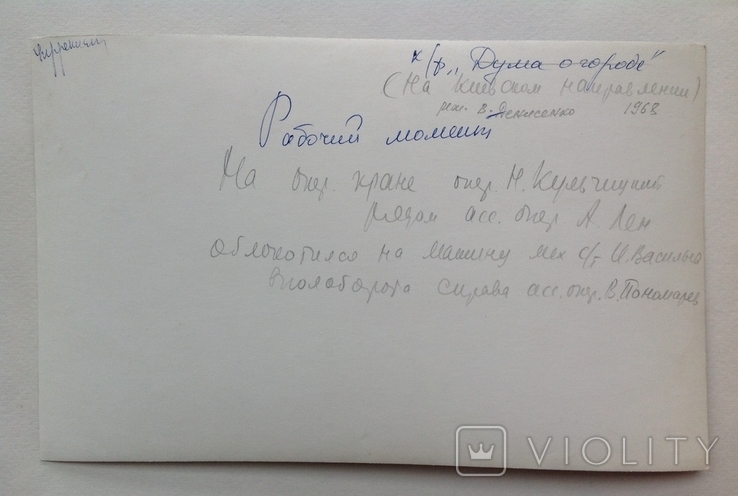 к/ф „Дума о городе"
(На Киевском направлении)
реж. В. Денисенко 1968
Рабочий момент
На опер. кране опер. Н. Кульчицкий
рядом асс. опер А Лен
облокотился на машину мех с/т И. Василько
вполаборота справа асс. опер. В. Пономарев
VIOLITY